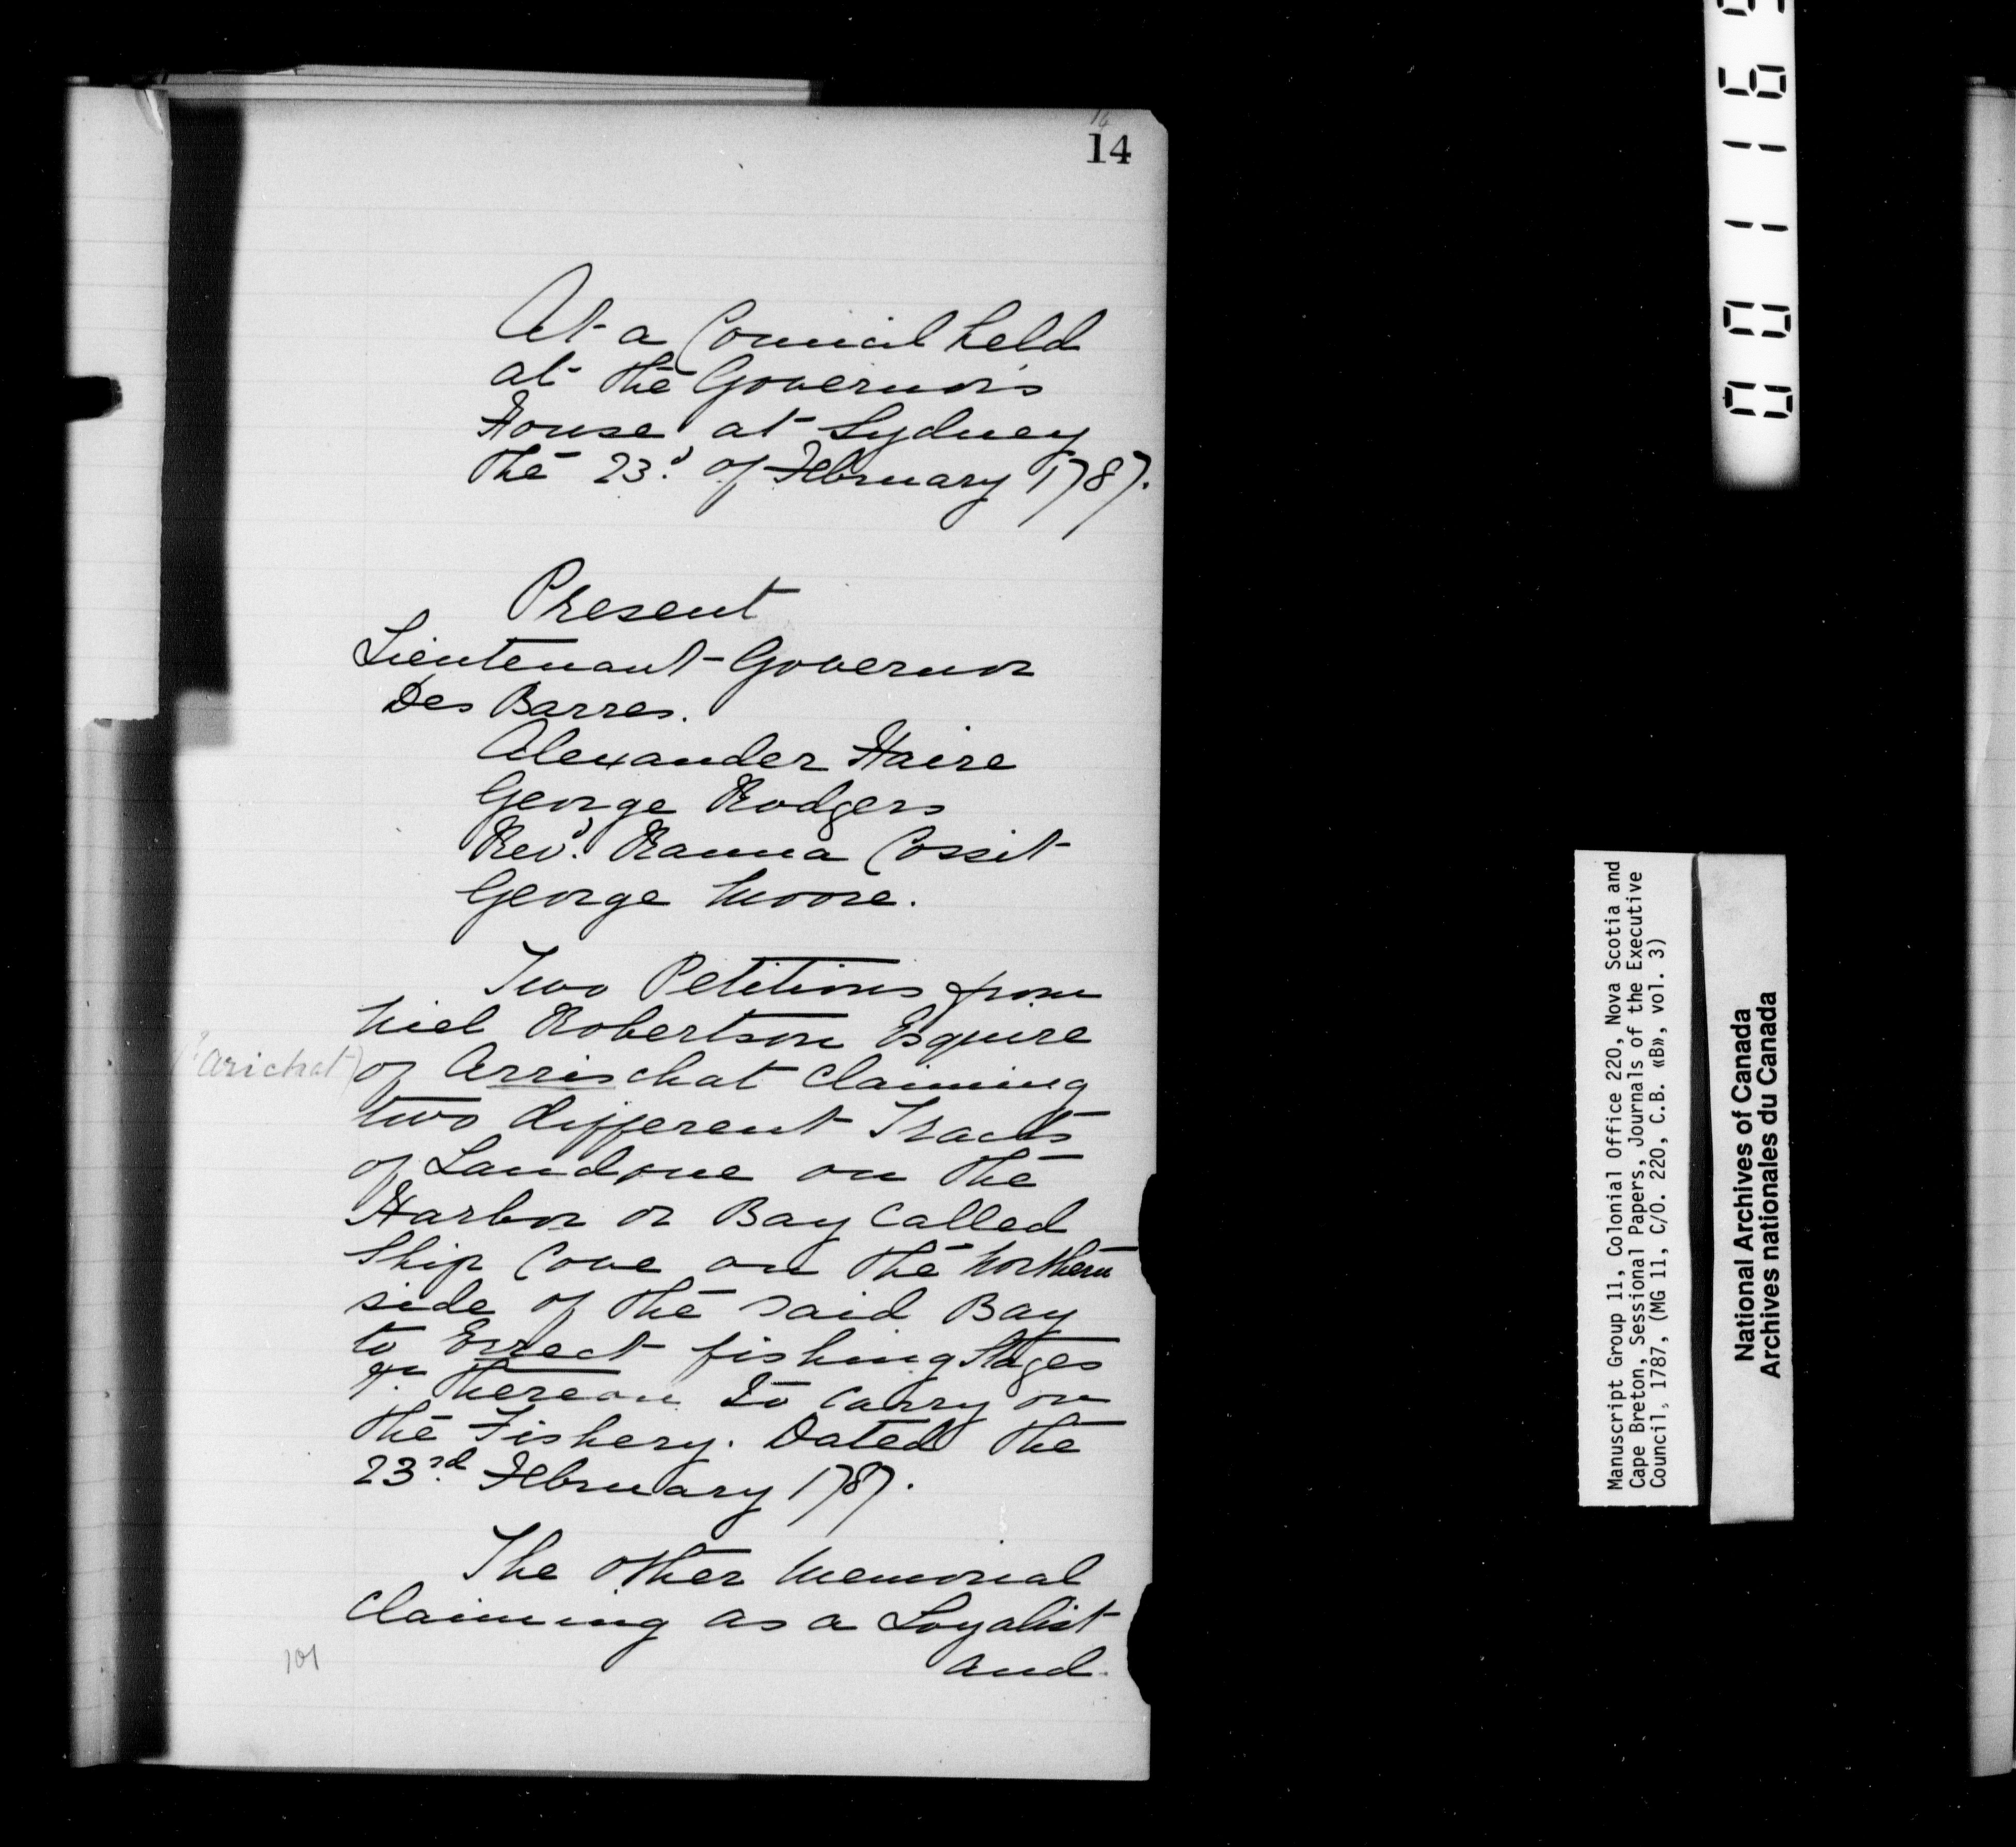 14
At a Council held
at the Governor's
House at Sydney
the 23.d of February 1787.
Present
Lieutenant-Governor
Des Barres.
Alexander Haire
George Rodgers
Revd. Ranna Cossit
George Moore.
Two Petitions from
Niel Robertson Esquire
(? Arichat) of Arrischat claiming
two different Tracts
of Land one on the
Harbor or Bay called
Ship Cove on the Northern
side of the said Bay
to Errect fishing Stages
thereon to carry on
the Fishery. Dated the
23.rd February 1787.
The other Memorial
claiming as a Loyalist
and
101
001169
Manuscript Group 11, Colonial Office 220, Nova Scotia and
Cape Breton, Sessional Papers, Journals of the Executive
Council, 1787, (MG 11, C/O. 220, C.B. «B», vol. 3)
National Archives of Canada
Archives nationales du Canada